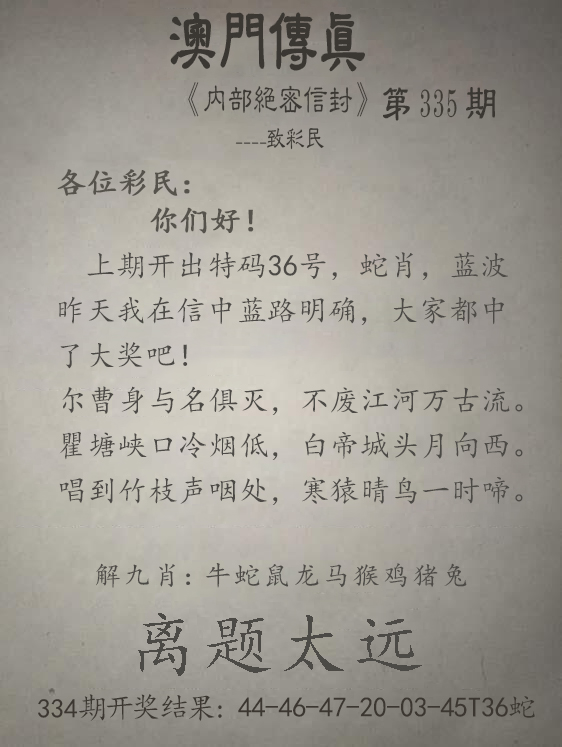 澳門傳眞
《内部絕密信封》第335期
----致彩民
各位彩民：
你们好！
上期开出特码36号，蛇肖，蓝波
昨天我在信中蓝路明确，大家都中
了大奖吧！
尔曹身与名俱灭，不废江河万古流。
瞿塘峡口冷烟低，白帝城头月向西。
唱到竹枝声咽处，寒猿晴鸟一时啼。
解九肖：牛蛇鼠龙马猴鸡猪兔
离题太远
334期开奖结果：44-46-47-20-03-45T36蛇